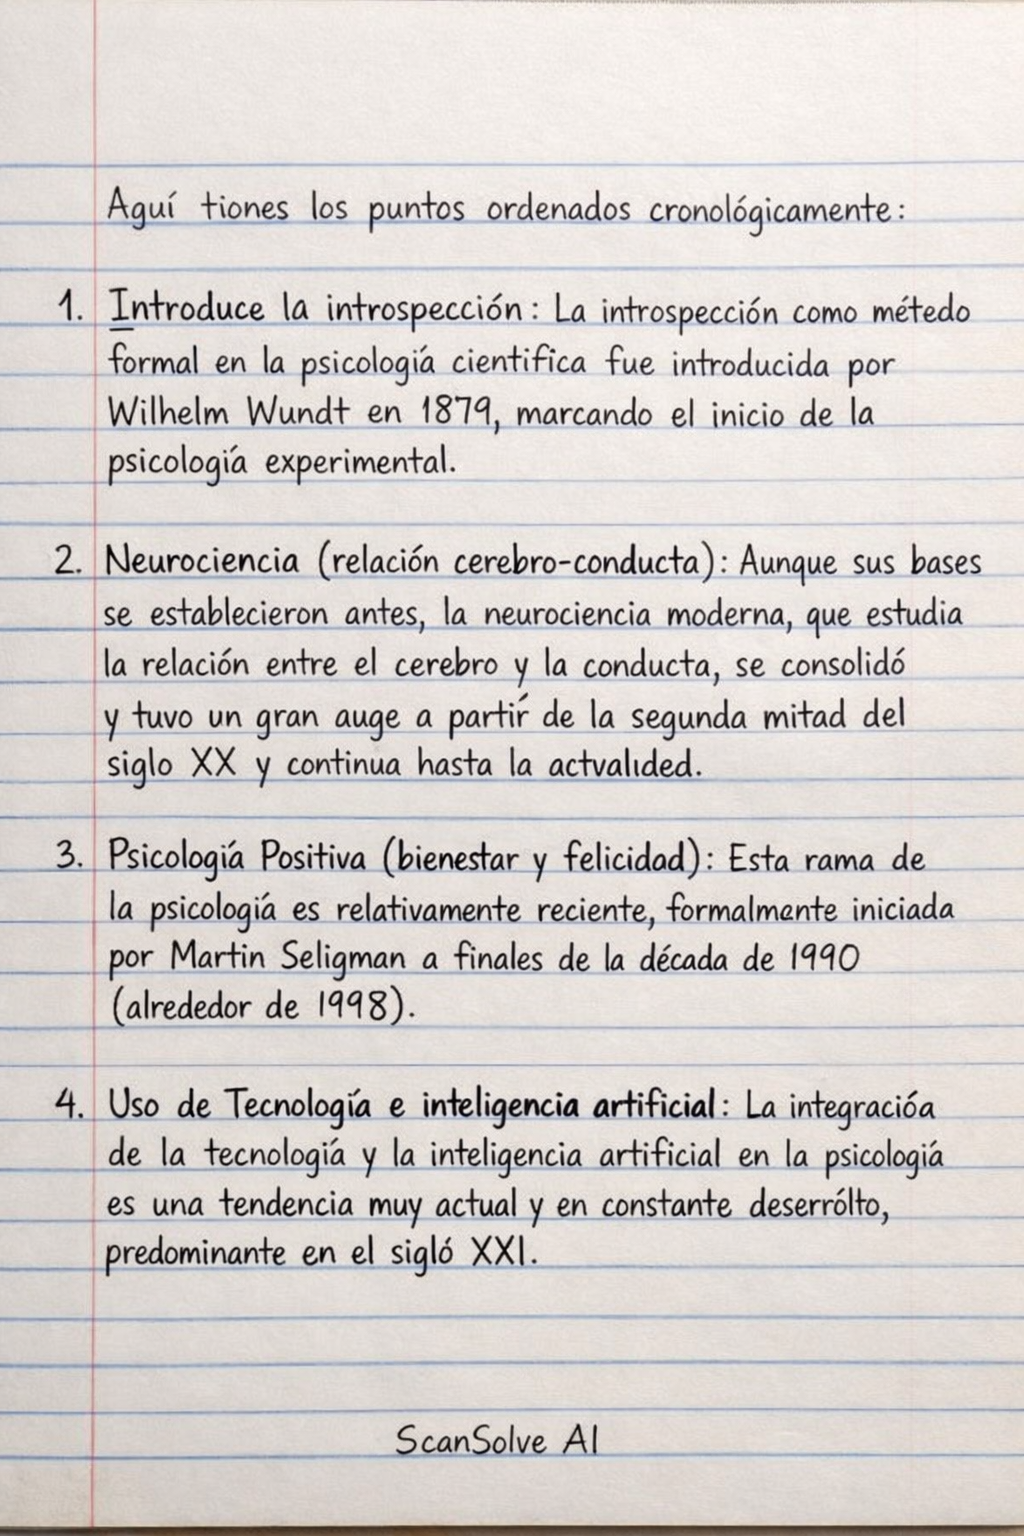 Aguí tiones los puntos ordenados cronológicamente:
1. Introduce la introspección: La introspección como métedo
formal en la psicologiá cientifica fue introducida por
Wilhelm Wundt en 1879, marcando el inicio de la
psicologiá experimental.
2. Neurociencia (relación cerebro-conducta): Aunque sus bases
se establecieron antes, la neurociencia moderna, que estudia
la relación entre el cerebro y la conducta, se consolidó
y tuvo un gran auge a partiŕ de la segunda mitad del
siglo XX y continua hasta la actvalıded.
3. Psicologiá Positiva (bienestar y felicidad): Esta rama de
la psicologiá es relativamente reciente, formalmente iniciada
por Martin Seligman a finales de la década de 1990
(alrededor de 1998).
4. Uso de Tecnologiá e inteligencia artificial: La integracióa
de la tecnologiá y la inteligencia artificial en la psicologiá
es una tendencia muy actual y en constante deserrólto,
predominante en el sigló XXI.
ScanSolve AI